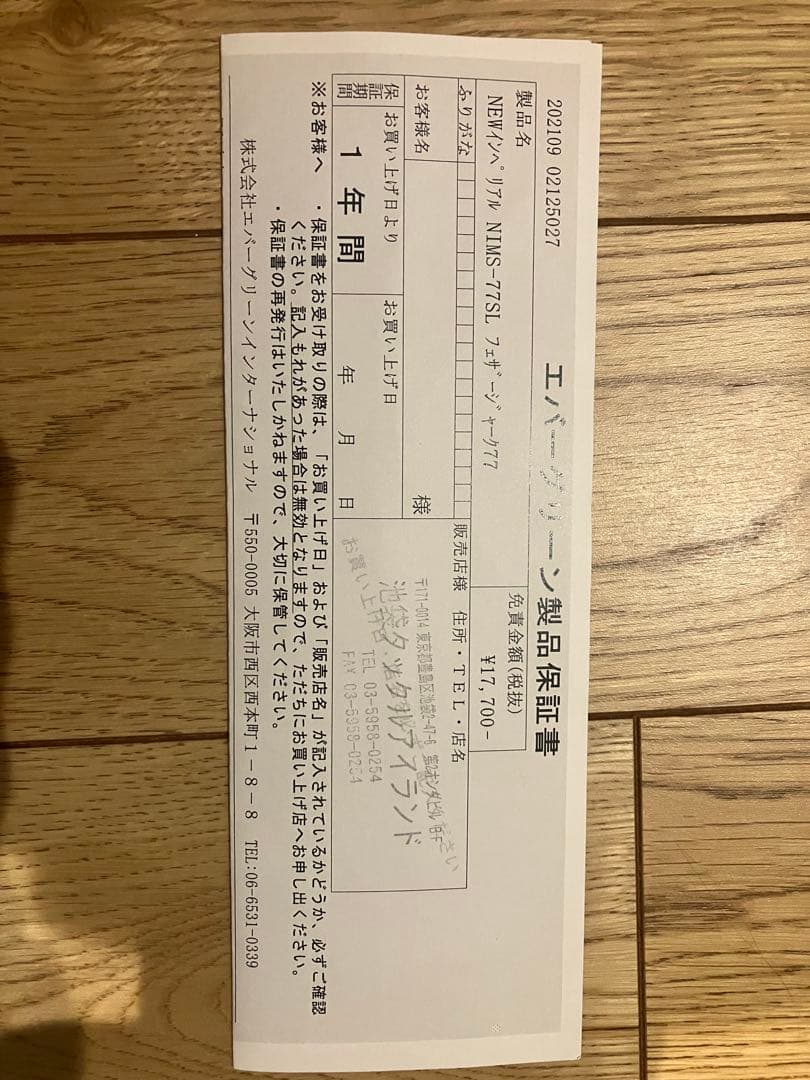 エバーグリーン製品保証書
202109 02125027
製品名
NEWインペリアル NIMS-77SL フェザージャーク77
免責金額(税抜)
¥17,700-
ふりがな
お客様名
様
販売店様 住所・TEL・店名
〒171-0014 東京都豊島区池袋2-47-6
池袋タックルアイランド
TEL 03-5958-0254
FAX 03-5958-0254
保証期間
お買い上げ日より
1年間
お買い上げ日
年 月 日
※お客様へ ・保証書をお受け取りの際は、「お買い上げ日」および「販売店名」が記入されているかどうか、必ずご確認
ください。記入もれがあった場合は無効となりますので、ただちにお買い上げ店へお申し出ください。
・保証書の再発行はいたしかねますので、大切に保管してください。
株式会社エバーグリーンインターナショナル 〒550-0005 大阪市西区西本町1-8-8 TEL:06-6531-0339